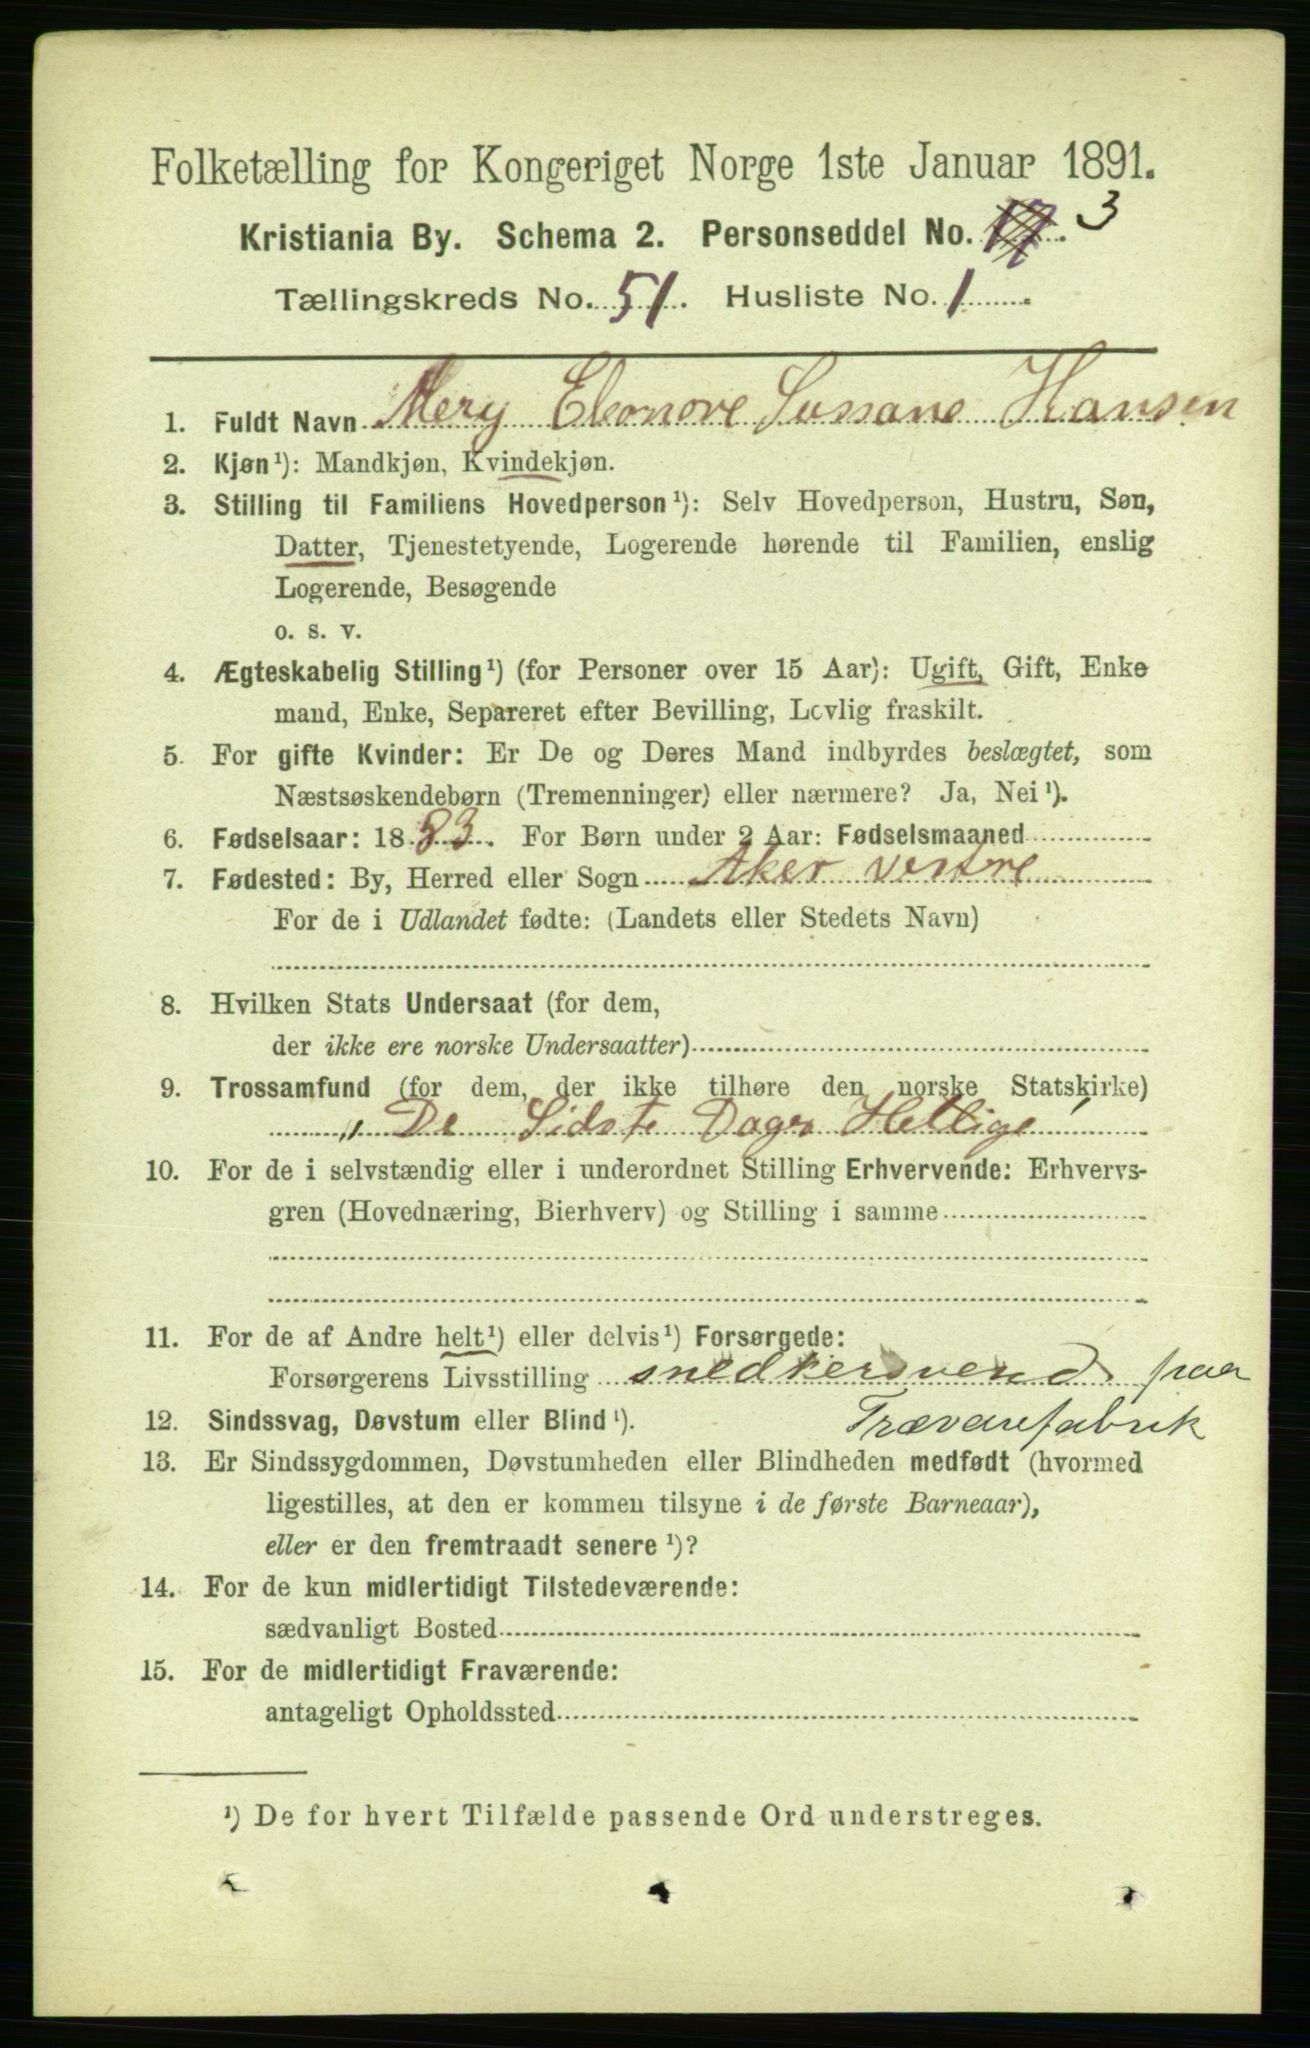 Folketælling for Kongeriget Norge 1ste Januar 1891.
Kristiania By. Schema 2. Personseddel No. 3
Tællingskreds No. 51. Husliste No. 1
1. Fuldt Navn Mery Eleonore Sussane Hansen
2. Kjøn ¹): Mandkjøn, Kvindekjøn.
3. Stilling til Familiens Hovedperson ¹): Selv Hovedperson, Hustru, Søn,
Datter, Tjenestetyende, Logerende hørende til Familien, enslig
Logerende, Besøgende
o. s. v.
4. Ægteskabelig Stilling ¹) (for Personer over 15 Aar): Ugift, Gift, Enke
mand, Enke, Separeret efter Bevilling, Lovlig fraskilt.
5. For gifte Kvinder: Er De og Deres Mand indbyrdes beslægtet, som
Næstsøskendebørn (Tremenninger) eller nærmere? Ja, Nei ¹).
6. Fødselsaar: 1883. For Børn under 2 Aar: Fødselsmaaned
7. Fødested: By, Herred eller Sogn Aker vestre
For de i Udlandet fødte: (Landets eller Stedets Navn)
8. Hvilken Stats Undersaat (for dem,
der ikke ere norske Undersaatter)
9. Trossamfund (for dem, der ikke tilhøre den norske Statskirke)
„De Sidste Dages Hellige"
10. For de i selvstændig eller i underordnet Stilling Erhvervende: Erhvervs-
gren (Hovednæring, Bierhverv) og Stilling i samme
11. For de af Andre helt ¹) eller delvis ¹) Forsørgede:
Forsørgerens Livsstilling snedkersvend paa
Trævarefabrik
12. Sindssvag, Døvstum eller Blind ¹).
13. Er Sindssygdommen, Døvstumheden eller Blindheden medfødt (hvormed
ligestilles, at den er kommen tilsyne i de første Barneaar),
eller er den fremtraadt senere ¹)?
14. For de kun midlertidigt Tilstedeværende:
sædvanligt Bosted
15. For de midlertidigt Fraværende:
antageligt Opholdssted
¹) De for hvert Tilfælde passende Ord understreges.